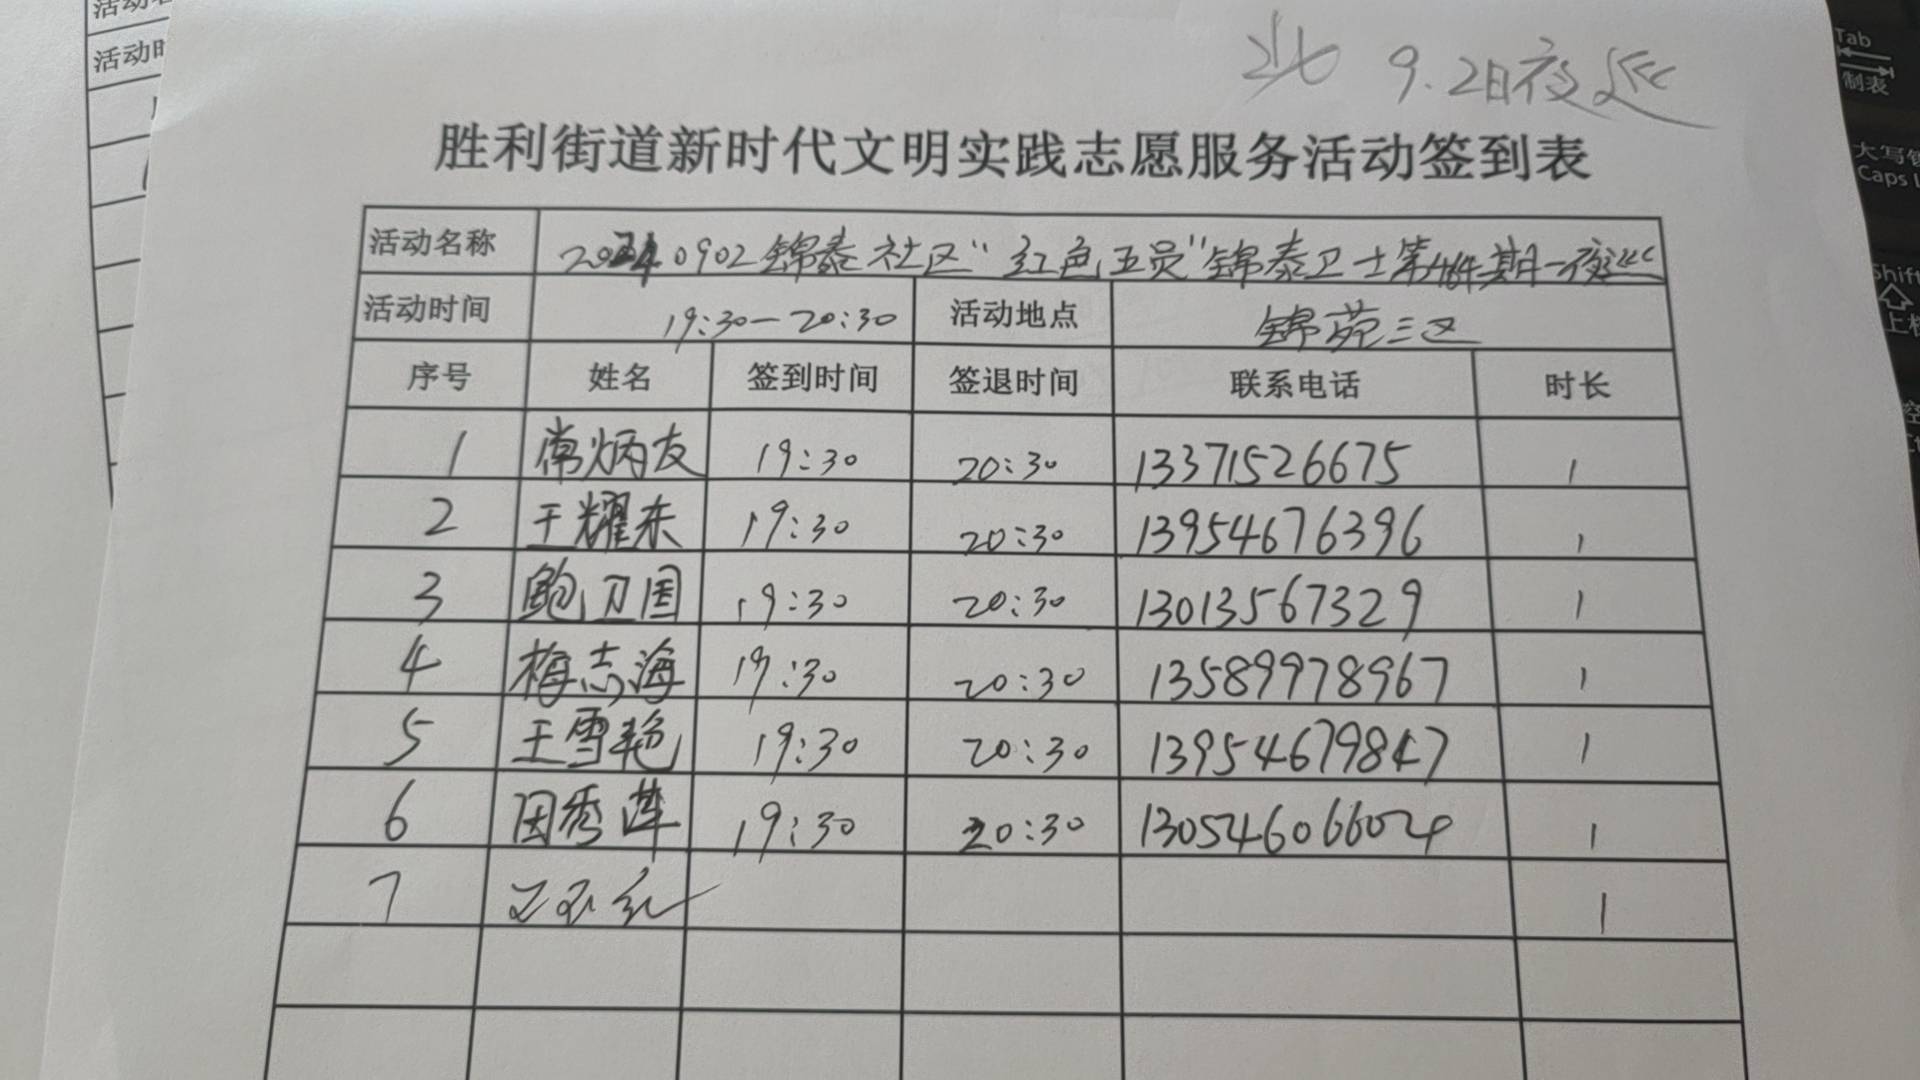 北 9.2日夜巡
胜利街道新时代文明实践志愿服务活动签到表
活动名称 20240902锦泰社区“红色五员”锦泰卫士第 期—夜巡
活动时间 19:30—20:30 活动地点 锦苑三区
序号 姓名 签到时间 签退时间 联系电话 时长
1 常炳友 19:30 20:30 13371526675 1
2 王耀东 19:30 20:30 13954676396 1
3 鲍卫国 19:30 20:30 13013567329 1
4 梅志海 19:30 20:30 13589978967 1
5 王雪艳 19:30 20:30 13954679847 1
6 田秀莲 19:30 20:30 13054606602 1
7 1
活动时
Tab
制表
大写锁
Caps L
Shift
上档
空